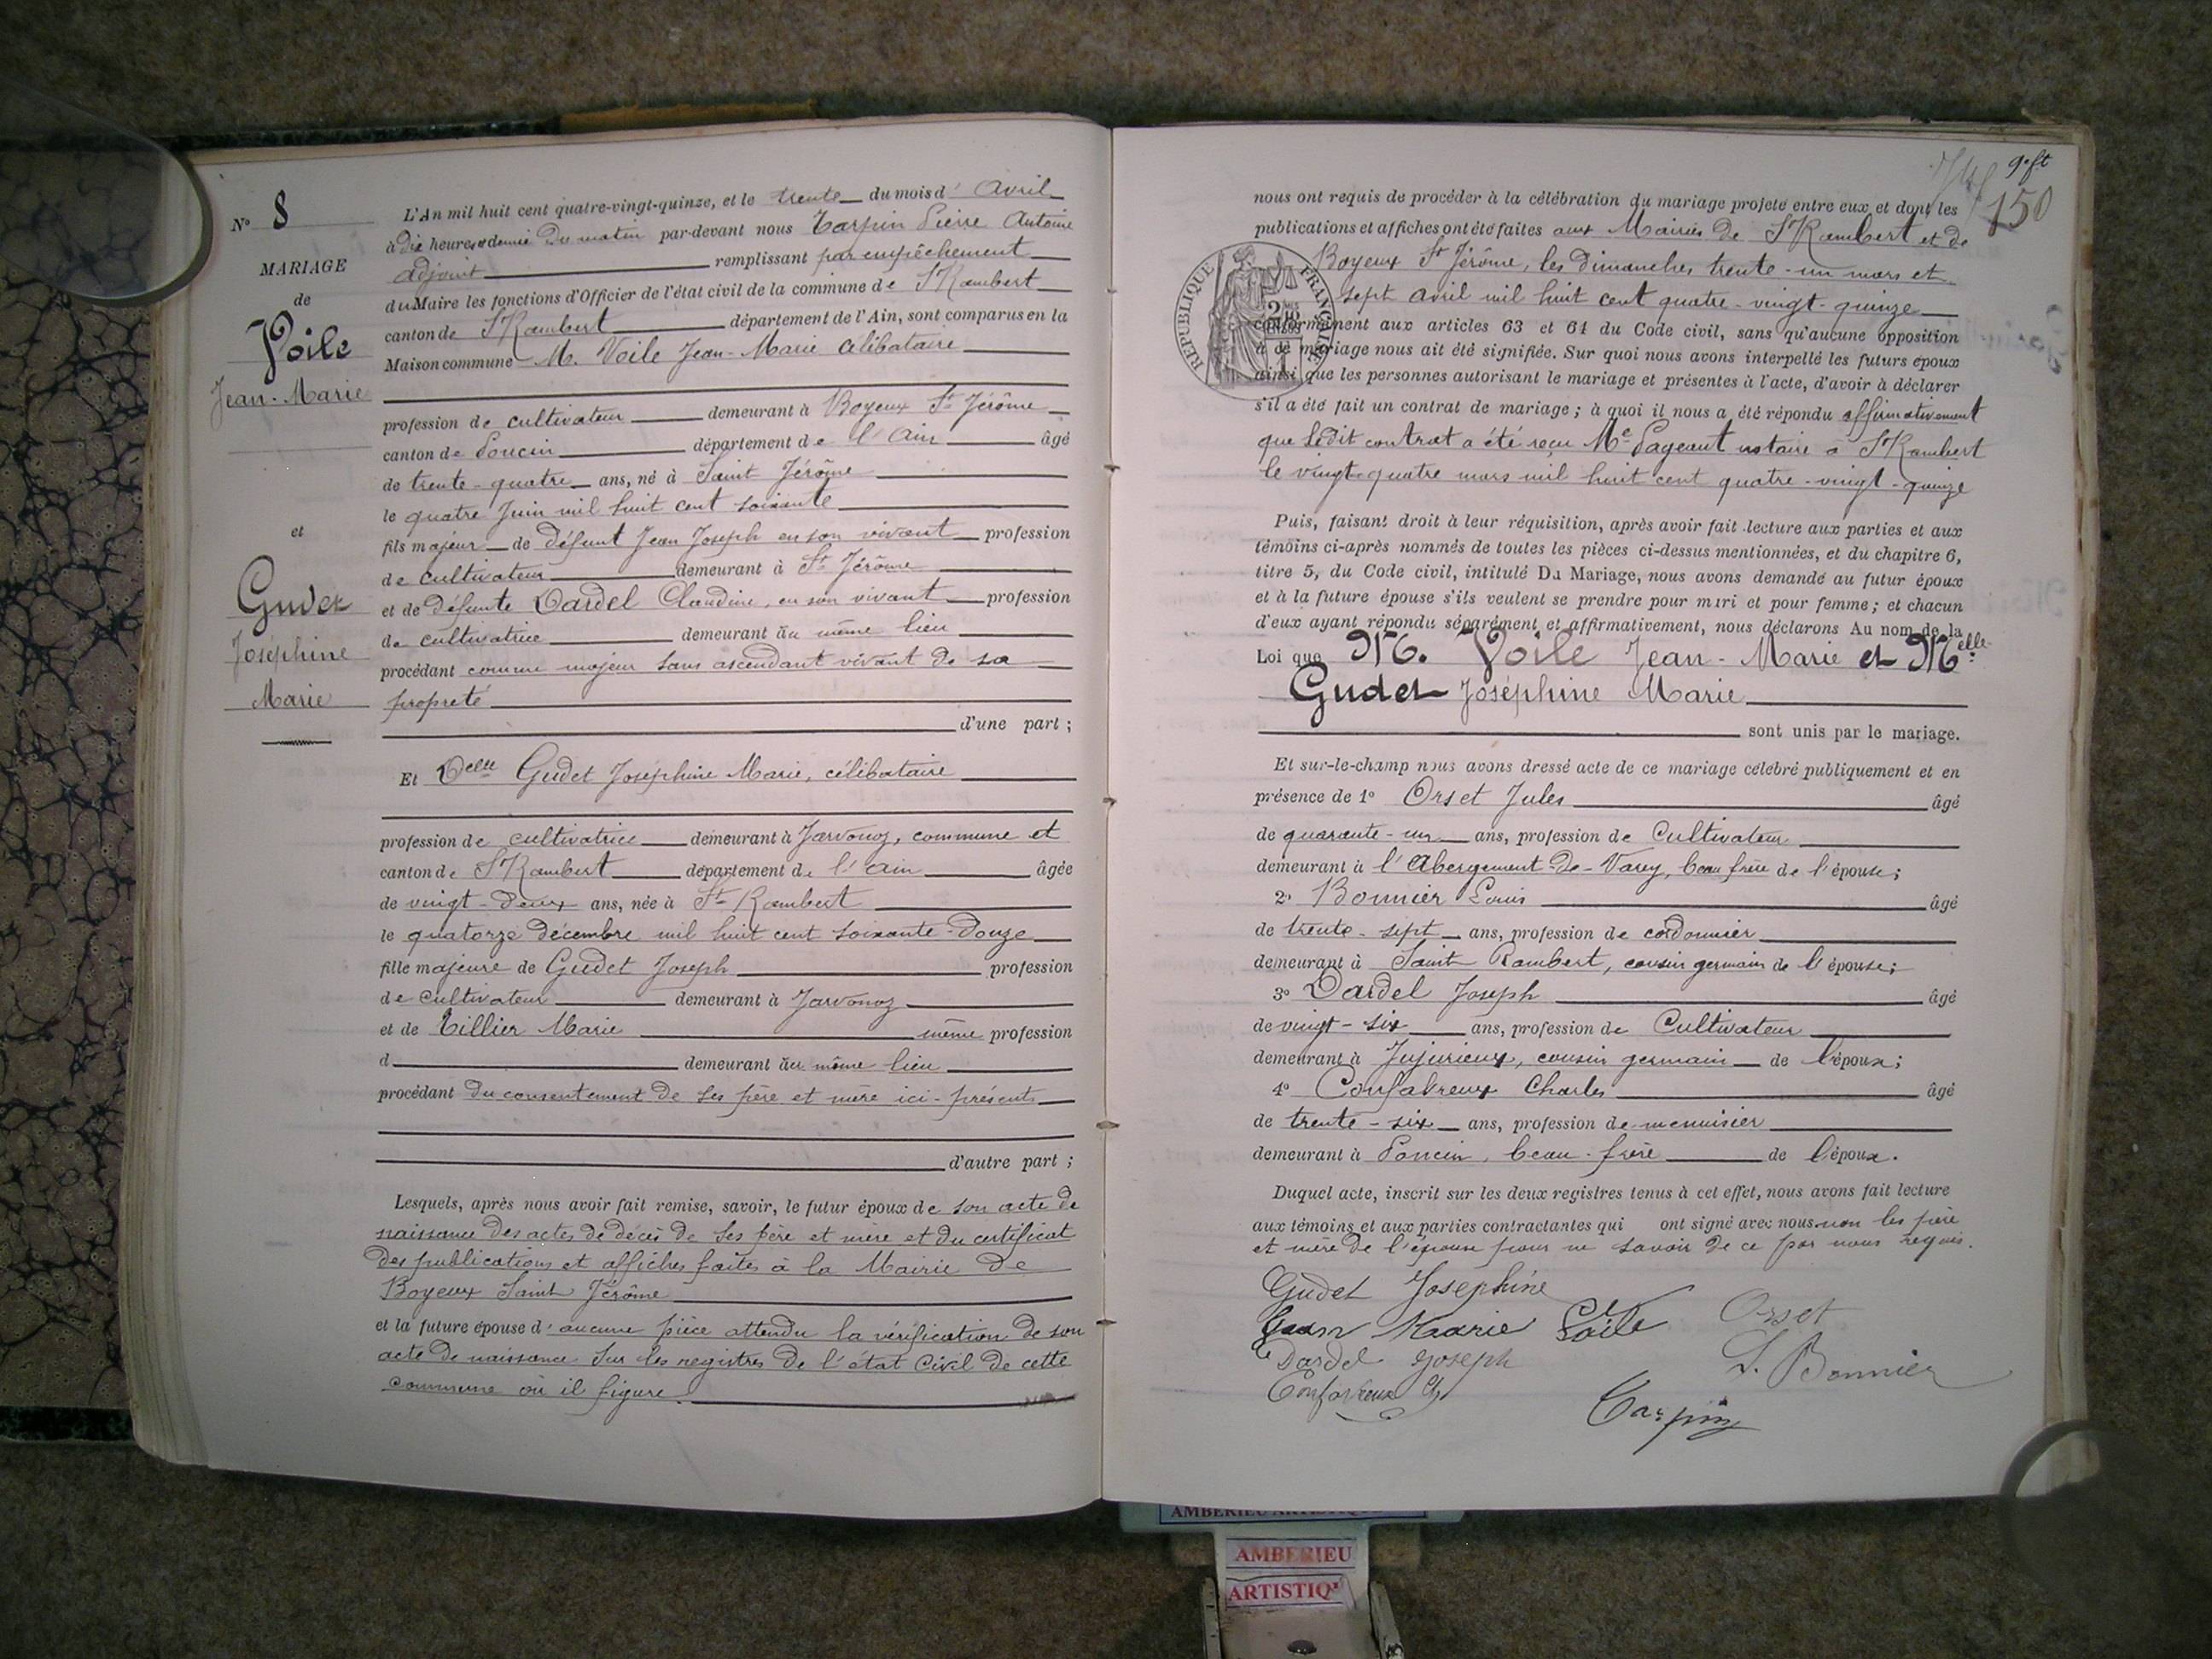 N° 8
MARIAGE
de
Voile
Jean-Marie
et
Gudet
Joséphine
Marie
L'An mil huit cent quatre-vingt-quinze, et le trente du mois d' Avril
à dix heures et demie du matin par-devant nous Tarpin Pierre Antoine
adjoint remplissant par empêchement
du Maire les fonctions d'Officier de l'état civil de la commune de St Rambert
canton de St Rambert département de l'Ain, sont comparus en la
Maison commune M. Voile Jean-Marie célibataire
profession de cultivateur demeurant à Boyeux St Jérôme
canton de Poncin département de l'Ain âgé
de trente-quatre ans, né à Saint Jérôme
le quatre Juin mil huit cent soixante
fils majeur de défunt Jean Joseph en son vivant profession
de cultivateur demeurant à St Jérôme
et de défunte Dardel Claudine, en son vivant profession
de cultivatrice demeurant au même lieu
procédant comme majeur sans ascendant vivant de sa
propreté
d'une part ;
Et Delle Gudet Joséphine Marie, célibataire
profession de cultivatrice demeurant à Javornoz, commune et
canton de St Rambert département de l'ain âgée
de vingt-deux ans, née à St Rambert
le quatorze décembre mil huit cent soixante-douze
fille majeure de Gudet Joseph profession
de cultivateur demeurant à Javornoz
et de Tillier Marie même profession
d demeurant au même lieu
procédant du consentement de ses père et mère ici-présents
d'autre part ;
Lesquels, après nous avoir fait remise, savoir, le futur époux de son acte de
naissance des actes de décès de ses père et mère et du certificat
des publications et affiches faites à la Mairie de
Boyeux Saint Jérôme
et la future épouse d'aucune pièce attendu la vérification de son
acte de naissance sur les registres de l'état civil de cette
commune où il figure.
150
nous ont requis de procéder à la célébration du mariage projeté entre eux et dont les
publications et affiches ont été faites aux Mairies de St Rambert et de
Boyeux St Jérôme, les dimanches trente-un mars et
sept avril mil huit cent quatre-vingt-quinze
conformément aux articles 63 et 64 du Code civil, sans qu'aucune opposition
à ce mariage nous ait été signifiée. Sur quoi nous avons interpellé les futurs époux
ainsi que les personnes autorisant le mariage et présentes à l'acte, d'avoir à déclarer
s'il a été fait un contrat de mariage ; à quoi il nous a été répondu affirmativement
que ledit contrat a été reçu Me Pageaut notaire à St Rambert
le vingt-quatre mars mil huit cent quatre-vingt-quinze
RÉPUBLIQUE FRANÇAISE
Puis, faisant droit à leur réquisition, après avoir fait lecture aux parties et aux
témoins ci-après nommés de toutes les pièces ci-dessus mentionnées, et du chapitre 6,
titre 5, du Code civil, intitulé Du Mariage, nous avons demandé au futur époux
et à la future épouse s'ils veulent se prendre pour mari et pour femme ; et chacun
d'eux ayant répondu séparément et affirmativement, nous déclarons Au nom de la
Loi que M. Voile Jean-Marie et Melle
Gudet Joséphine Marie
sont unis par le mariage.
Et sur-le-champ nous avons dressé acte de ce mariage célébré publiquement et en
présence de 1° Orset Jules âgé
de quarante-un ans, profession de Cultivateur
demeurant à l'Abergement-de-Varey, beau frère de l'épouse;
2° Bonnier Louis âgé
de trente-sept ans, profession de cordonnier
demeurant à Saint Rambert, cousin germain de l'épouse;
3° Dardel Joseph âgé
de vingt-six ans, profession de Cultivateur
demeurant à Jujurieux, cousin germain de l'époux;
4° Confavreux Charles âgé
de trente-six ans, profession de menuisier
demeurant à Poncin, beau-frère de l'époux.
Duquel acte, inscrit sur les deux registres tenus à cet effet, nous avons fait lecture
aux témoins et aux parties contractantes qui ont signé avec nous non les père
et mère de l'épouse pour ne savoir de ce par nous requis.
Gudet Josephine
Jean Marie Voile Orset
Dardel Joseph
L. Bonnier
Confavreux Ch
Tarpin
AMBERIEU ARTISTIQUE
AMBERIEU
ARTISTIQ